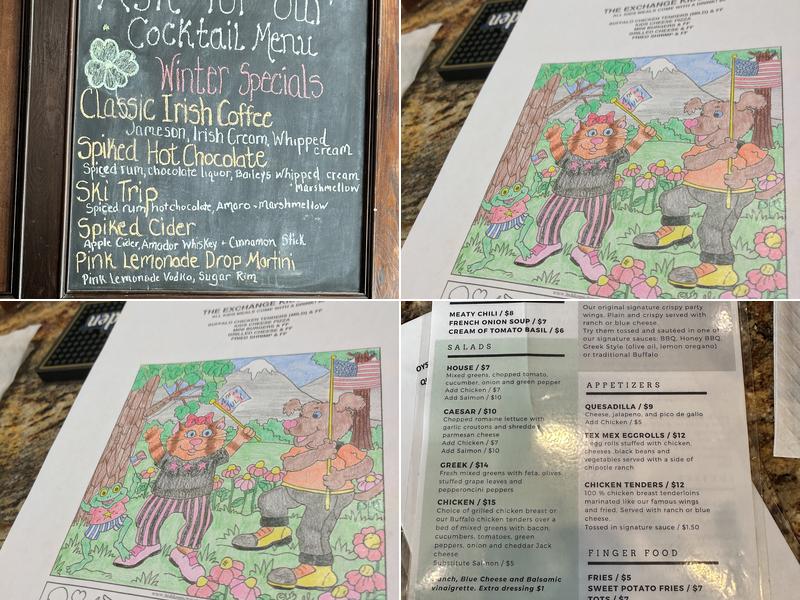 Ask for our
Cocktail Menu
Winter Specials
Classic Irish Coffee
Jameson, Irish Cream, Whipped
cream
Spiked Hot Chocolate
Spiced rum, chocolate liquor, Baileys whipped cream
Marshmellow
Ski Trip
Spiced rum, hot chocolate, Amaro - Marshmellow
Spiked Cider
Apple Cider, Amador Whiskey + Cinnamon Stick
Pink Lemonade Drop Martini
Pink Lemonade Vodka, Sugar Rim
THE EXCHANGE
ALL KIDS MEALS COME WITH A DRINK!
BUFFALO CHICKEN TENDERS (MILD) & FF
KIDS CHEESE PIZZA
MINI BURGERS & FF
GRILLED CHEESE & FF
FRIED SHRIMP & FF
den
THE EXCHANGE
ALL KIDS MEALS COME WITH A DRINK
BUFFALO CHICKEN TENDERS (MILD) & FF
KIDS CHEESE PIZZA
MINI BURGERS & FF
GRILLED CHEESE & FF
FRIED SHRIMP & FF
den
MEATY CHILI / $8
FRENCH ONION SOUP / $7
CREAM OF TOMATO BASIL / $6
SALADS
HOUSE / $7
Mixed greens, chopped tomato,
cucumber, onion and green pepper
Add Chicken / $7
Add Salmon / $10
CAESAR / $10
Chopped romaine lettuce with
garlic croutons and shredded
parmesan cheese
Add Chicken / $7
Add Salmon / $10
GREEK / $14
Fresh mixed greens with feta, olives,
stuffed grape leaves and
pepperoncini peppers
CHICKEN / $15
Choice of grilled chicken breast or
our Buffalo chicken tenders over a
bed of mixed greens with bacon,
cucumbers, tomatoes, green
peppers, onion and cheddar Jack
cheese
Substitute Salmon / $5
Ranch, Blue Cheese and Balsamic
vinaigrette. Extra dressing $1
Our original signature crispy party
wings. Plain and crispy served with
ranch or blue cheese.
Try them tossed and sautéed in one of
our signature sauces: BBQ, Honey BBQ,
Greek Style (olive oil, lemon oregano)
or traditional Buffalo
APPETIZERS
QUESADILLA / $9
Cheese, jalapeno, and pico de gallo
Add Chicken / $5
TEX MEX EGGROLLS / $12
egg rolls stuffed with chicken,
cheeses, black beans and
vegetables served with a side of
chipotle ranch
CHICKEN TENDERS / $12
100 % chicken breast tenderloins
marinated like our famous wings
and fried. Served with ranch or blue
cheese.
Tossed in signature sauce / $1.50
FINGER FOOD
FRIES / $5
SWEET POTATO FRIES / $7
TOTS / $7